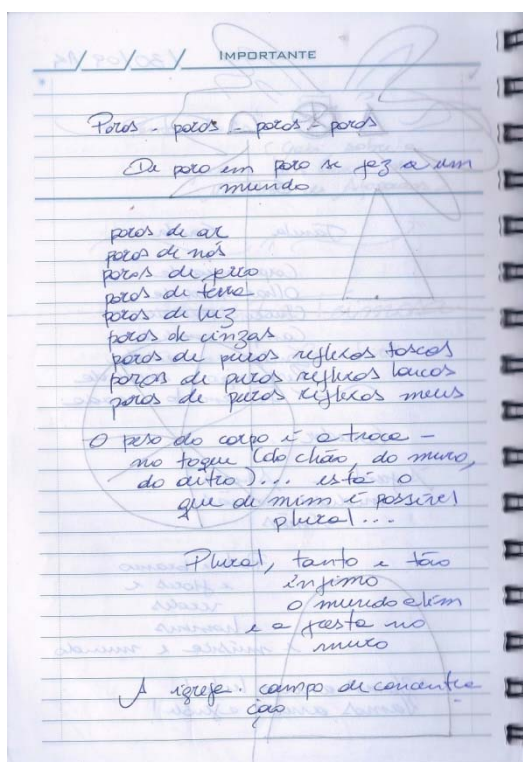 IMPORTANTE
Poros - poros - poros - poros
De poro em poro se fez a um
mundo
poros de ar
poros de nós
poros de
poros de terra
poros de luz
poros de cinzas
poros de puros reflexos toscos
poros de puros reflexos loucos
poros de puros reflexos meus
O peso do corpo é a troca -
no toque (do chão, do muro,
do outro)... está o
que de mim é possível
plural...
Plural, tanto e tão
ínfimo
o mundo além
e a fresta no
muro
A igreja. campo de concentra
ção